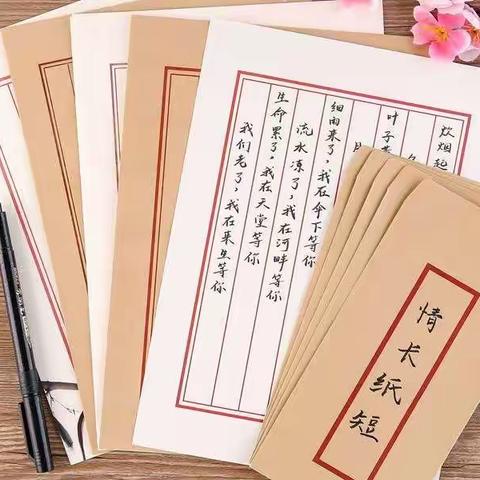 炊烟起
叶子
月
细雨来了，我在伞下等你
流水凉了，我在河畔等你
生命累了，我在天堂等你
我们老了，我在来生等你
情长纸短